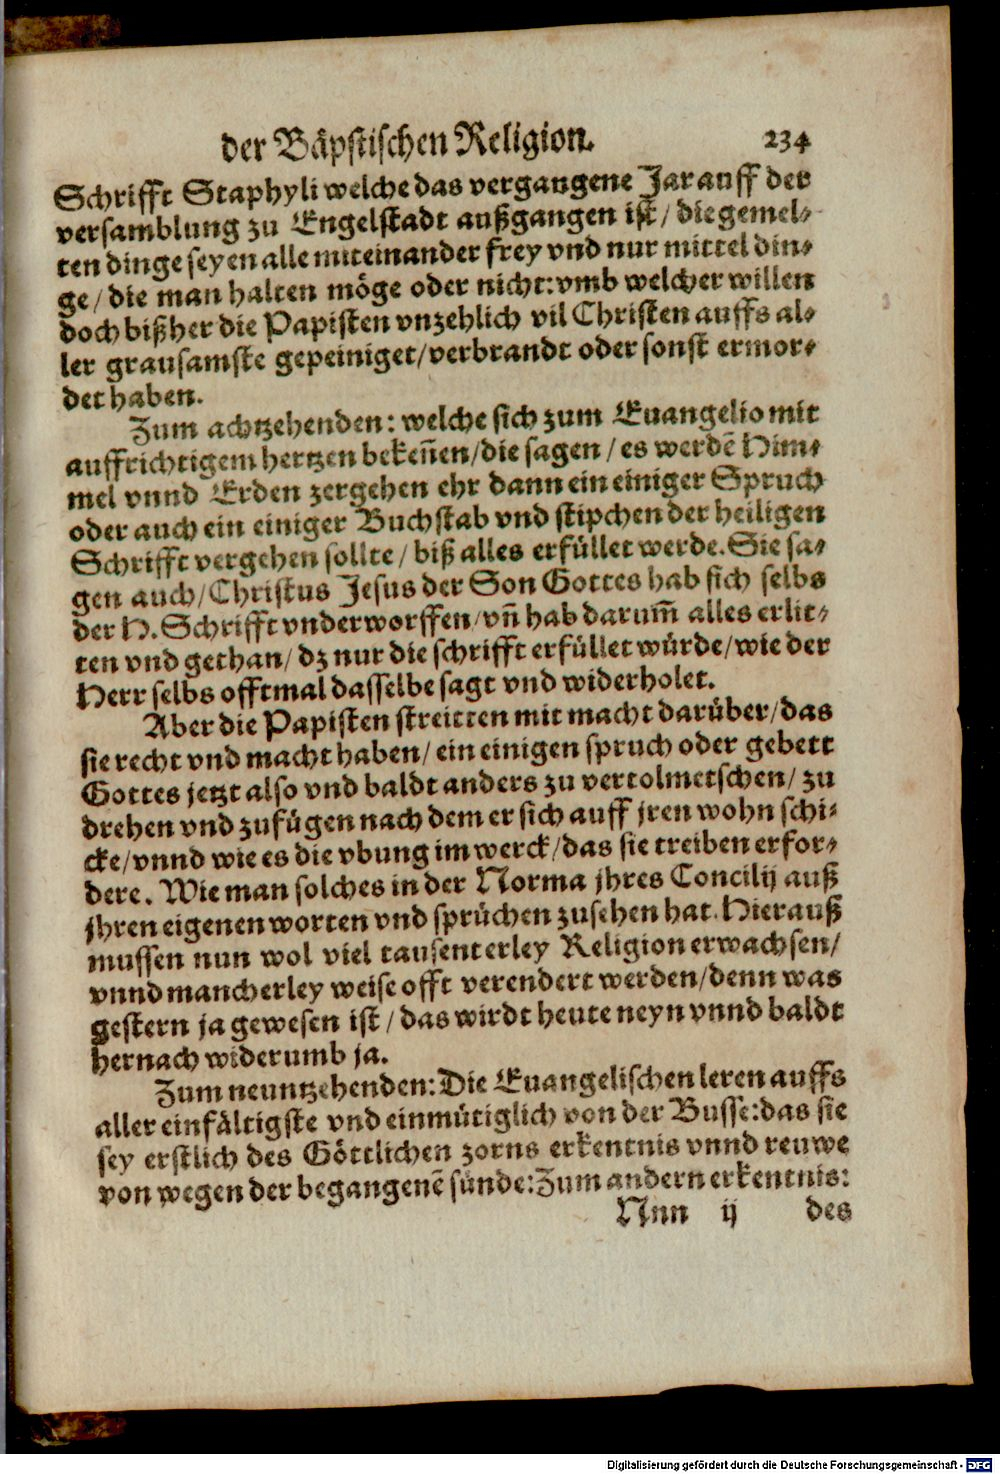 der Bäpstischen Religion. 234
Schrifft Staphyli welche das vergangene Jar auff der
versamblung zu Engelstadt außgangen ist / die gemel-
ten dinge seyen alle miteinander frey vnd nur mittel din-
ge / die man halten möge oder nicht: vmb welcher willen
doch bißher die Papisten vnzehlich vil Christen auffs al-
ler grausamste gepeiniget / verbrandt oder sonst ermor-
det haben.
Zum achtzehenden: welche sich zum Euangelio mit
auffrichtigem hertzen bekeñen / die sagen / es werdẽ Him-
mel vnnd Erden zergehen ehr dann ein einiger Spruch
oder auch ein einiger Buchstab vnd stipchen der heiligen
Schrifft vergehen sollte / biß alles erfüllet werde. Sie sa-
gen auch / Christus Jesus der Son Gottes hab sich selbs
der H. Schrifft vnderworffen / vñ hab darum̃ alles erlit-
ten vnd gethan / dz nur die schrifft erfüllet würde / wie der
Herr selbs offtmal dasselbe sagt vnd widerholet.
Aber die Papisten streitten mit macht darüber / das
sie recht vnd macht haben / ein einigen spruch oder gebett
Gottes jetzt also vnd baldt anders zu vertolmetschen / zu
drehen vnd zufügen nach dem er sich auff jren wohn schi-
cke / vnnd wie es die vbung im werck / das sie treiben erfor-
dere. Wie man solches in der Norma jhres Concilij auß
jhren eigenen worten vnd sprüchen zusehen hat. Hierauß
mussen nun wol viel tausenterley Religion erwachsen /
vnnd mancherley weise offt verendert werden / denn was
gestern ja gewesen ist / das wirdt heute neyn vnnd baldt
hernach widerumb ja.
Zum neuntzehenden: Die Euangelischen leren auffs
aller einfältigste vnd einmütiglich von der Busse: das sie
sey erstlich des Göttlichen zorns erkentnis vnnd reuwe
von wegen der begangenẽ sünde: Zum andern erkentnis:
Nnn ij des
Digitalisierung gefördert durch die Deutsche Forschungsgemeinschaft - DFG